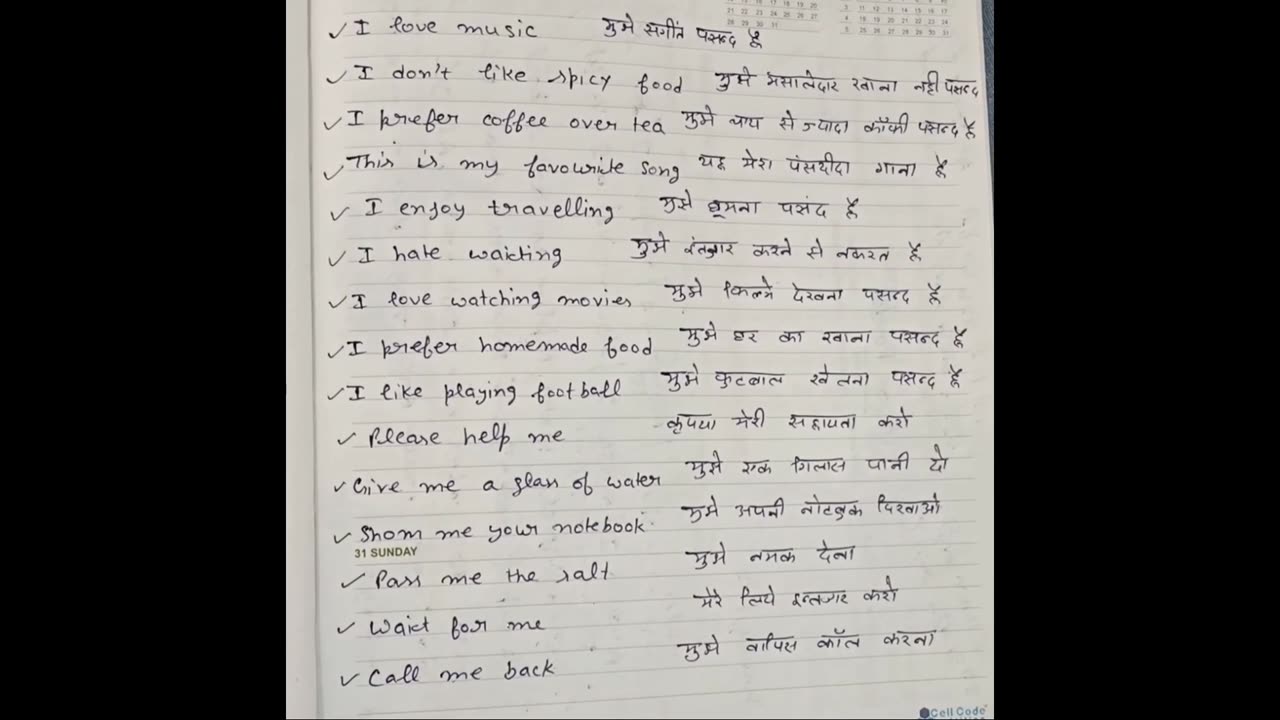 ✓ I love music मुझे सगींत पसन्द है
✓ I don't like spicy food मुझे मसालेदार खाना नही पसन्द
✓ I prefer coffee over tea मुझे चाय से ज्यादा कॉफी पसन्द है
✓ This is my favourite song यह मेरा पंसदीदा गाना है
✓ I enjoy travelling मुझे घूमना पसंद है
✓ I hate waiting मुझे इंतजार करने से नफरत है
✓ I love watching movies मुझे फिल्मे देखना पसन्द है
✓ I prefer homemade food मुझे घर का खाना पसन्द है
✓ I like playing football मुझे फुटबाल खेलना पसन्द है
✓ Please help me कृपया मेरी सहायता करो
✓ Give me a glass of water मुझे एक गिलास पानी दो
✓ Show me your notebook. मुझे अपनी नोटबुक दिखाओ
31 SUNDAY
✓ Pass me the salt मुझे नमक देना
✓ Wait for me मेरे लिये इन्तजार करो
✓ Call me back मुझे वापिस कॉल करना
Cell Code